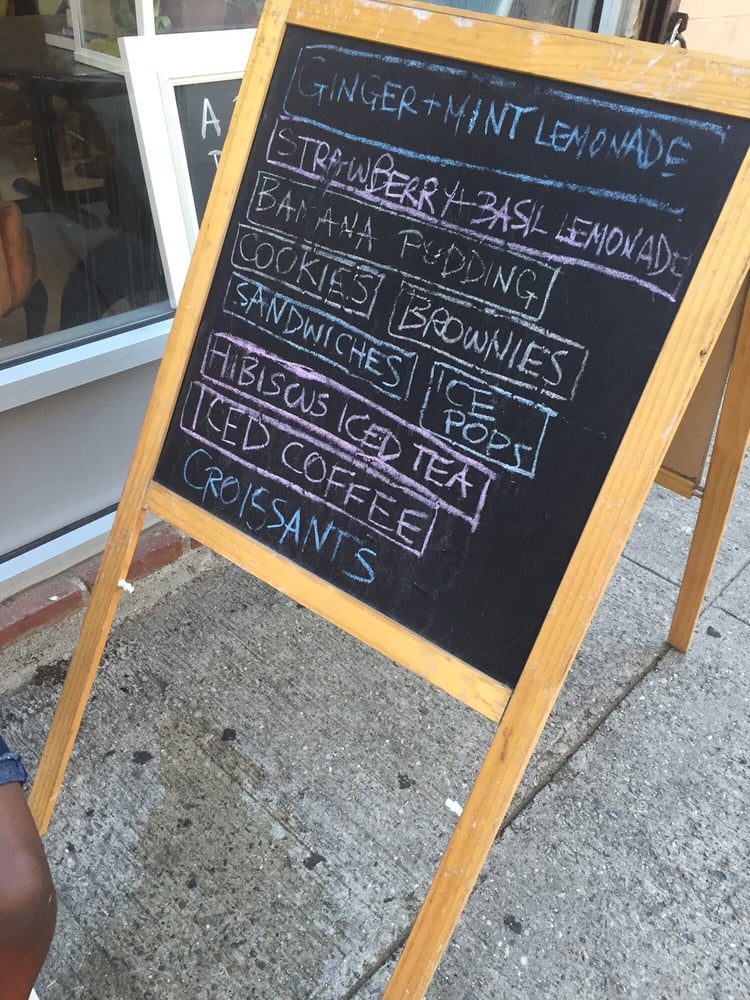 GINGER + MINT LEMONADE
STRAWBERRY + BASIL LEMONADE
BANANA PUDDING
COOKIES
BROWNIES
SANDWICHES
ICE
POPS
HIBISCUS ICED TEA
ICED COFFEE
CROISSANTS
A